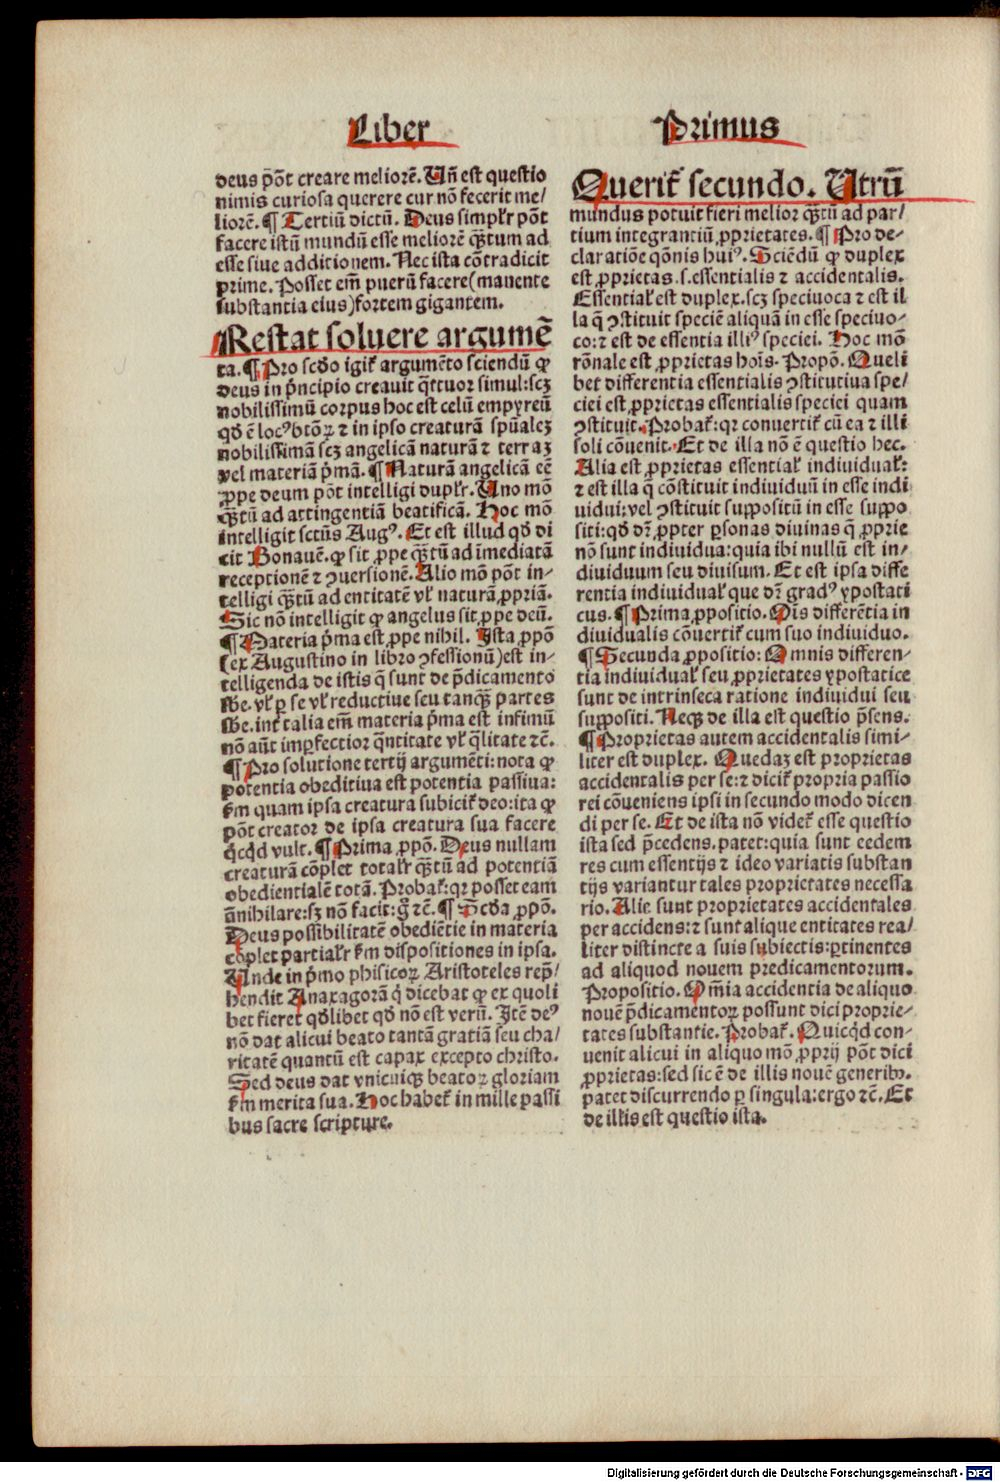 Liber
deus põt creare meliorē. Uñ est questio
nimis curiosa querere cur nõ fecerit me/
liorē. ¶ Tertiū dictū. Deus simplr̄ põt
facere istū mundū esse meliorē q̄ꝫtum ad
esse siue additionem. Nec ista cõtradicit
prime. Posset em̄ puerū facere (manente
substantia eius) fortem gigantem.
Restat soluere argumē
ta. ¶ Pro scd̓o igit̄ argumēto sciendū ꝙ
deus in p̄ncipio creauit q̄ttuor simul: scꝫ
nobilissimū corpus hoc est celū empyreū
qd̓ ē locꝰ btõꝝ ⁊ in ipso creaturā spūalеꝫ
nobilissimā scꝫ angelicā naturā ⁊ terraꝫ
vel materiā p̄mā. ¶ Naturā angelicā eē
ꝓpe deum põt intelligi duplr̄. Uno mõ
q̄ꝫtū ad attingentiā beatificā. Hoc mõ
intelligit sctūs Augꝰ. Et est illud qd̓ di
cit Bonauē. ꝙ sit ꝓpe q̄ꝫtū ad īmediatā
receptionē ⁊ ꝯuersionē. Alio mõ põt in-
telligi q̄ꝫtū ad entitatē vl̓ naturā ꝓpriā.
Sic nõ intelligit ꝙ angelus sit ꝓpe deū.
¶ Materia p̄ma est ꝓpe nihil. Ista ꝓpõ
(ex Augustino in libro ꝯfessionū) est in-
telligenda de istis q̄ sunt de p̄dicamento
sb̓e. vl̓ ꝑ se vl̓ reductiue seu tanqꝫ partes
sb̓e. int̄ talia em̄ materia p̄ma est infimū
nõ aūt imꝑfectior q̄ntitate vl̓ q̄litate ⁊c̄.
¶ Pro solutione tertij argumēti: nota ꝙ
potentia obeditiua est potentia passiua:
s̓m quam ipsa creatura subicit̄ deo: ita ꝙ
põt creator de ipsa creatura sua facere
q̇cq̇d vult. ¶ Prima ꝓpõ. Deus nullam
creaturā cõplet totalr̄ q̄ꝫtū ad potentiā
obedientialē totā. Probat̄: qꝛ posset eam
ānihilare: sꝫ nõ facit: g̊ ⁊c̄. ¶ Scd̓a ꝓpõ.
Deus possibilitatē obediētie in materia
cõplet partialr̄ s̓m dispositiones in ipsa.
Unde in p̄mo phisicoꝝ Aristoteles rep̄/
hendit Anaxagorā q̇ dicebat ꝙ ex quoli
bet fieret qd̓libet qd̓ nõ est verū. Itē deꝰ
nõ dat alicui beato tantā gratiā seu cha/
ritatē quantū est capax excepto christo.
Sed deus dat vnicuiqꝫ beatoꝝ gloriam
s̓m merita sua. Hoc habet̄ in mille passi
bus sacre scripture.
Primus
Querit̄ secundo. Utrū
mundus potuit fieri melior q̄ꝫtū ad par/
tium integrantiū ꝓprietates. ¶ Pro de-
claratiōe qōnis huiꝰ. Sciēdū ꝙ duplex
est ꝓprietas .s. essentialis ⁊ accidentalis.
Essential̓ est duplex. scꝫ speciuoca ⁊ est il
la q̄ ꝯstituit speciē aliquā in esse speciuo-
co: ⁊ est de essentia illiꝰ speciei. Hoc mõ
rōnale est ꝓprietas hoīs. Propõ. Queli
bet differentia essentialis ꝯstitutiua spe/
ciei est ꝓprietas essentialis speciei quam
ꝯstituit. Probat̄: qꝛ conuertit̄ cū ea ⁊ illi
soli cõuenit. Et de illa nõ ē questio hec.
Alia est ꝓprietas essential̓ indiuidual̓:
⁊ est illa q̄ cõstituit indiuiduū in esse indi
uidui: vel ꝯstituit suppositū in esse suppo
siti: qd̓ dr̄ ꝓpter ꝑsonas diuinas q̄ ꝓprie
nõ sunt indiuidua: quia ibi nullū est in/
diuiduum seu diuisum. Et est ipsa diffe
rentia indiuidual̓ que dr̄ gradꝰ ypostati
cus. ¶ Prima ꝓpositio. Ois differētia in
diuidualis cõuertit̄ cum suo indiuiduo.
¶ Secunda ꝓpositio: Omnis differen-
tia indiuidual̓ seu ꝓprietates ypostatice
sunt de intrinseca ratione indiuidui seu
suppositi. Neqꝫ de illa est questio p̄sens.
¶ Proprietas autem accidentalis simi-
liter est duplex. Quedaꝫ est proprietas
accidentalis per se: ⁊ dicit̄ propria passio
rei cõueniens ipsi in secundo modo dicen
di per se. Et de ista nõ videt̄ esse questio
ista sed p̄cedens. patet: quia sunt eedem
res cum essentijs ⁊ ideo variatis substan
tijs variantur tales proprietates necessa
rio. Alie sunt proprietates accidentales
per accidens: ⁊ sunt alique entitates rea/
liter distincte a suis subiectis: ꝑtinentes
ad aliquod nouem predicamentorum.
Propositio. Om̄ia accidentia de aliquo
nouē p̄dicamentoꝝ possunt dici proprie-
tates substantie. Probat̄. Quicq̇d con-
uenit alicui in aliquo mõ ꝓprij põt dici
ꝓprietas: sed sic ē de illis nouē generibꝫ.
patet discurrendo ꝑ singula: ergo ⁊c̄. Et
de illis est questio ista.
Digitalisierung gefördert durch die Deutsche Forschungsgemeinschaft - DFG